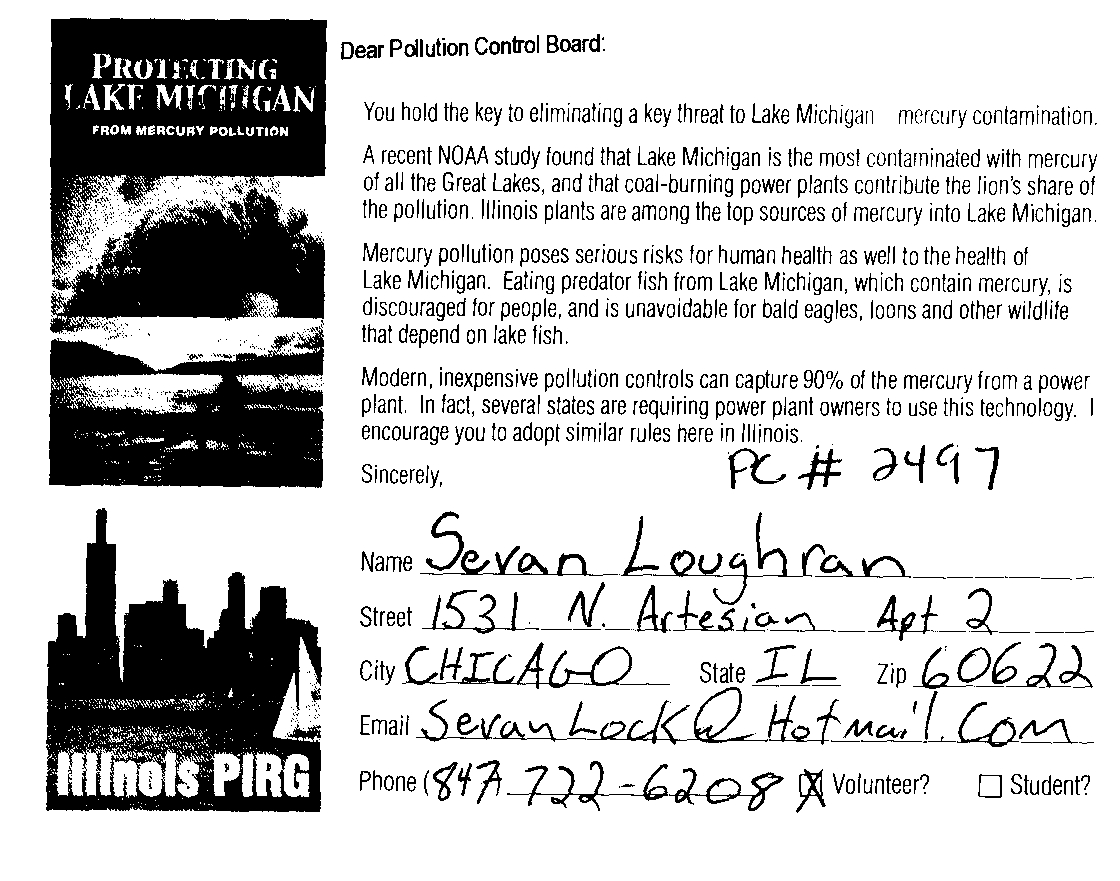 PROTECTING
LAKE MICHIGAN
FROM MERCURY POLLUTION
Illinois PIRG
Dear Pollution Control Board:
You hold the key to eliminating a key threat to Lake Michigan mercury contamination.
A recent NOAA study found that Lake Michigan is the most contaminated with mercury
of all the Great Lakes, and that coal-burning power plants contribute the lion's share of
the pollution. Illinois plants are among the top sources of mercury into Lake Michigan.
Mercury pollution poses serious risks for human health as well to the health of
Lake Michigan. Eating predator fish from Lake Michigan, which contain mercury, is
discouraged for people, and is unavoidable for bald eagles, loons and other wildlife
that depend on lake fish.
Modern, inexpensive pollution controls can capture 90% of the mercury from a power
plant. In fact, several states are requiring power plant owners to use this technology. I
encourage you to adopt similar rules here in Illinois.
Sincerely,
PC # 2497
Name Sevan Loughran
Street 1531 N. Artesian Apt 2
City CHICAGO State IL Zip 60622
Email SevanLock@Hotmail.Com
Phone (847) 722-6208 Volunteer? Student?